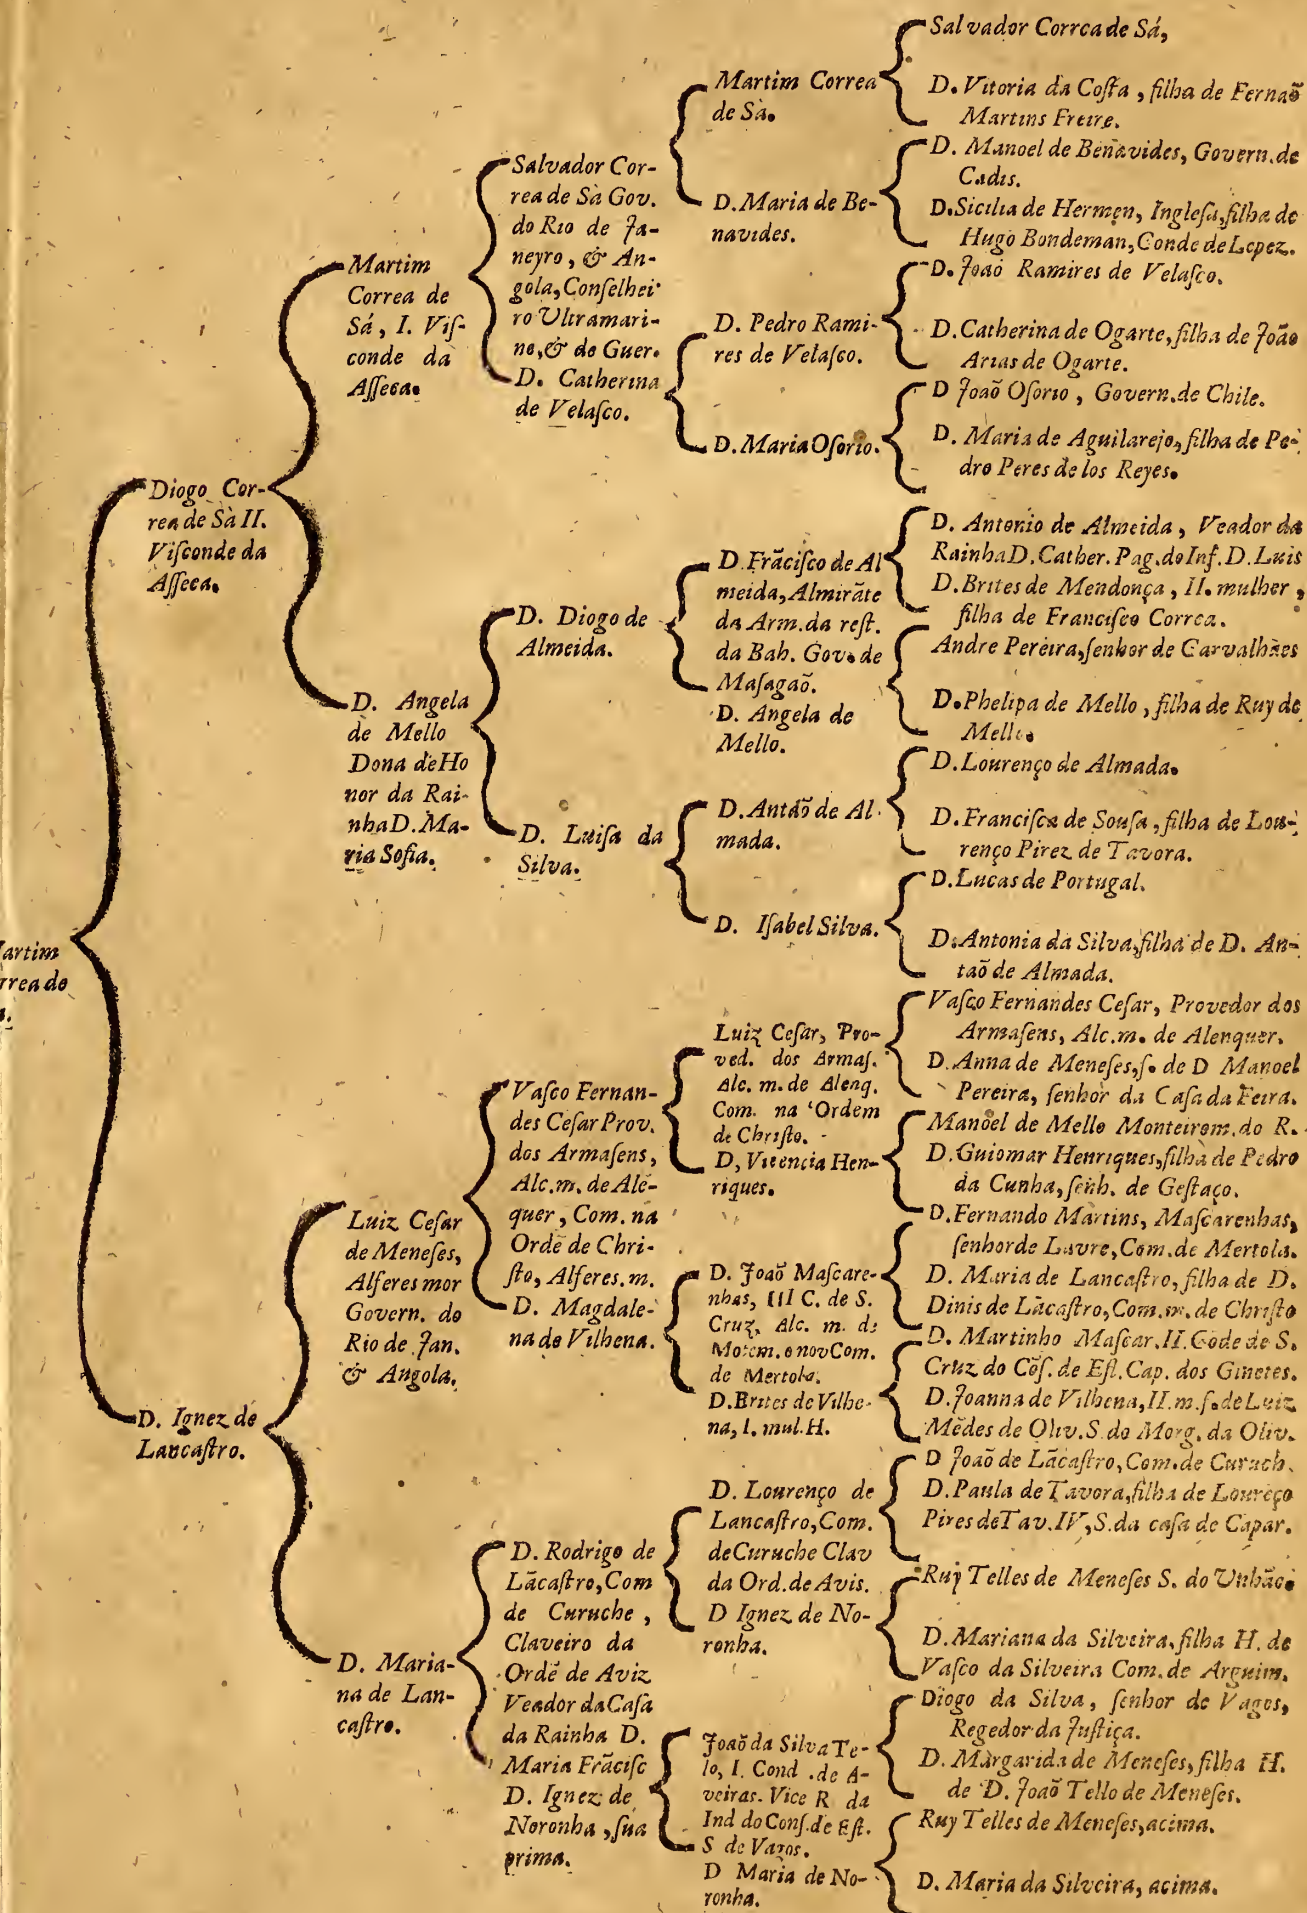 Martim
Correa de Sá.
Diogo Cor-
rea de Sà II.
Viſconde da
Aſſeca.
D. Ignez de
Lancaſtro.
Martim
Correa de
Sá, I. Viſ-
conde da
Aſſeca.
D. Angela
de Mello
Dona de Ho
nor da Rai-
nha D. Ma-
ria Sofia.
Luiz Ceſar
de Meneſes,
Alferes mor
Govern. do
Rio de Jan.
& Angola.
D. Maria-
na de Lan-
caſtro.
Salvador Cor-
rea de Sà Gov.
do Rio de Ja-
neyro, & An-
gola, Conſelhei
ro Ultramari-
no, & de Guer.
D. Catherina
de Velaſco.
D. Diogo de
Almeida.
D. Luiſa da
Silva.
Vaſco Fernan-
des Ceſar Prov.
dos Armaſens,
Alc. m. de Alẽ-
quer, Com. na
Ordẽ de Chri-
ſto, Alferes. m.
D. Magdale-
na de Vilhena.
D. Rodrigo de
Lãcaſtro, Com
de Curuche,
Claveiro da
Ordẽ de Aviz
Veador da Caſa
da Rainha D.
Maria Frãciſc
D. Ignez de
Noronha, ſua
prima.
Martim Correa
de Sà.
D. Maria de Be-
navides.
D. Pedro Rami-
res de Velaſco.
D. Maria Oſorio.
D. Frãciſco de Al
meida, Almirãte
da Arm. da reſt.
da Bah. Gov. de
Maſagaõ.
D. Angela de
Mello.
D. Antaõ de Al-
mada.
D. Iſabel Silva.
Luiz Ceſar, Pro-
ved. dos Armaſ.
Alc. m. de Alenq.
Com. na Ordem
de Chriſto.
D, Vicencia Hen-
riques.
D. Joaõ Maſcare-
nhas, III C. de S.
Cruz, Alc. m. de
Motem. o nov Com.
de Mertola.
D. Brites de Vilhe-
na, I. mul. H.
D. Lourenço de
Lancaſtro, Com.
de Curuche Clav
da Ord. de Avis.
D Ignez de No-
ronha.
Joaõ da Silva Te-
lo, I. Cond. de A-
veiras. Vice R da
Ind do Conſ. de Eſt.
S de Vagos.
D Maria de No-
ronha.
Salvador Correa de Sá,
D. Vitoria da Coſta, filha de Fernaõ
Martins Freire.
D. Manoel de Benavides, Govern. de
Cadis.
D. Sicilia de Hermen, Ingleſa, filha de
Hugo Bondeman, Conde de Lepez.
D. Joaõ Ramires de Velaſco.
D. Catherina de Ogarte, filha de Joaõ
Arias de Ogarte.
D Joaõ Oſorio, Govern. de Chile.
D. Maria de Aguilarejo, filha de Pe-
dro Peres de los Reyes.
D. Antonio de Almeida, Veador da
Rainha D. Cather. Pag. do Inf. D. Luis
D. Brites de Mendonça, II. mulher,
filha de Franciſco Correa.
Andre Pereira, ſenhor de Carvalhães
D. Phelipa de Mello, filha de Ruy de
Mello.
D. Lourenço de Almada.
D. Franciſca de Souſa, filha de Lou-
renço Pirez de Tavora.
D. Lucas de Portugal.
D. Antonia da Silva, filha de D. An-
taõ de Almada.
Vaſco Fernandes Ceſar, Provedor dos
Armaſens, Alc. m. de Alenquer.
D. Anna de Meneſes, f. de D Manoel
Pereira, ſenhor da Caſa da Feira.
Manoel de Mello Monteiro m. do R.
D. Guiomar Henriques, filha de Pedro
da Cunha, ſenh. de Geſtaço.
D. Fernando Martins, Maſcarenhas,
ſenhor de Lavre, Com. de Mertola.
D. Maria de Lancaſtro, filha de D.
Dinis de Lãcaſtro, Com. m. de Chriſto
D. Martinho Maſcar. II. Cõde de S.
Cruz do Cõſ. de Eſt. Cap. dos Ginetes.
D. Joanna de Vilhena, II. m. f. de Luiz
Mẽdes de Oliv. S. do Morg. da Oliv.
D Joaõ de Lãcaſtro, Com. de Curuch.
D. Paula de Tavora, filha de Lourẽço
Pires de Tav. IV, S. da caſa de Capar.
Ruy Telles de Meneſes S. do Unhão
D. Mariana da Silveira, filha H. de
Vaſco da Silveira Com. de Arguim.
Diogo da Silva, ſenhor de Vagos,
Regedor da Juſtiça.
D. Margarida de Meneſes, filha H.
de D. Joaõ Tello de Meneſes.
Ruy Telles de Meneſes, acima.
D. Maria da Silveira, acima.